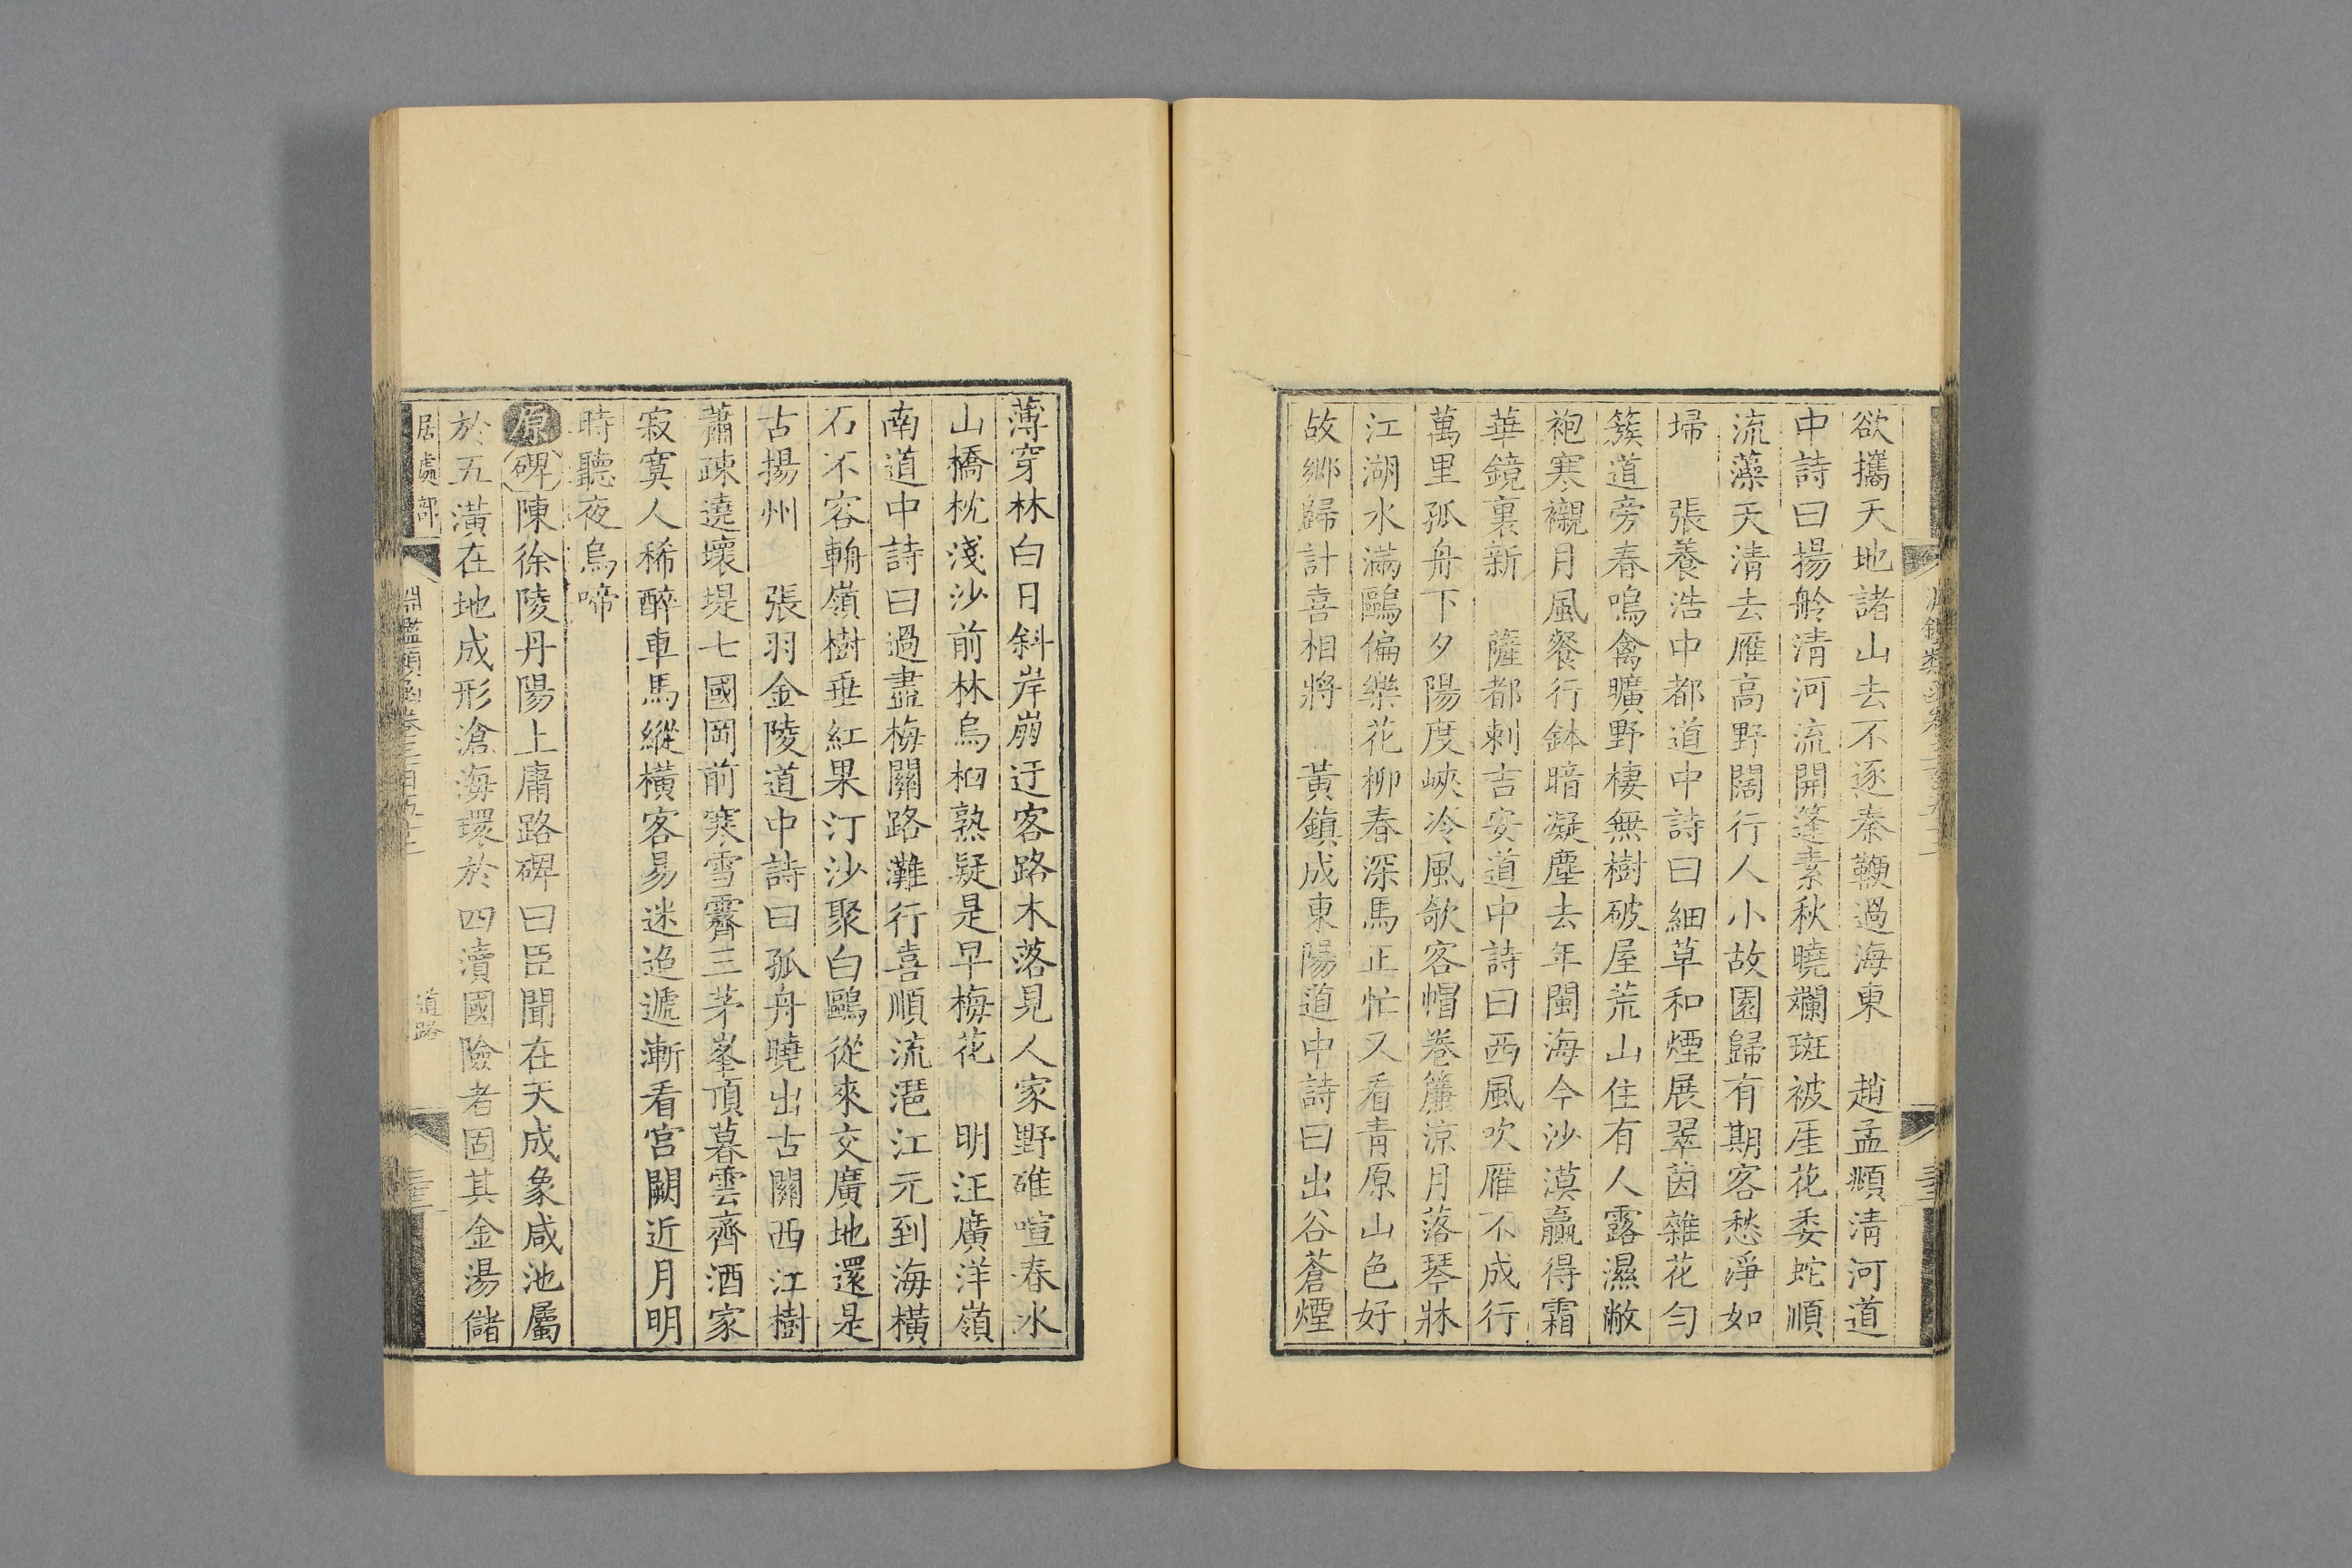 欲攜天地諸山去不逐秦鞭過海東　趙孟頫清河道
中詩曰揚舲清河流開篷素秋曉斕斑被厓花委蛇順
流藻天清去雁高野闊行人小故園歸有期客愁淨如
埽　張養浩中都道中詩曰細草和煙展翠茵雜花勻
簇道旁春鳴禽曠野棲無樹破屋荒山住有人露濕敝
袍寒襯月風餐行鉢暗凝塵去年閩海今沙漠贏得霜
華鏡裏新　薩都剌吉安道中詩曰西風吹雁不成行
萬里孤舟下夕陽度峽冷風欹客帽卷簾涼月落琴牀
江湖水滿鷗偏樂花柳春深馬正忙又看青原山色好
故鄉歸計喜相將　黃鎮成東陽道中詩曰出谷蒼煙
薄穿林白日斜岸崩迂客路木落見人家野碓喧春水
山橋枕淺沙前林烏桕熟疑是早梅花　明汪廣洋嶺
南道中詩曰過盡梅關路灘行喜順流湮江元到海橫
石不容輈嶺樹垂紅果汀沙聚白鷗從來交廣地還是
古揚州　張羽金陵道中詩曰孤舟曉出古關西江樹
蕭疎遶壞堤七國岡前寒雪霽三茅峯頂暮雲齊酒家
寂寞人稀醉車馬縱橫客易迷迢遞漸看宮闕近月明
時聽夜烏啼
原碑陳徐陵丹陽上庸路碑曰臣聞在天成象咸池屬
於五潢在地成形滄海環於四瀆國險者固其金湯儲
居處部　淵鑑類函卷三百五十二　道路